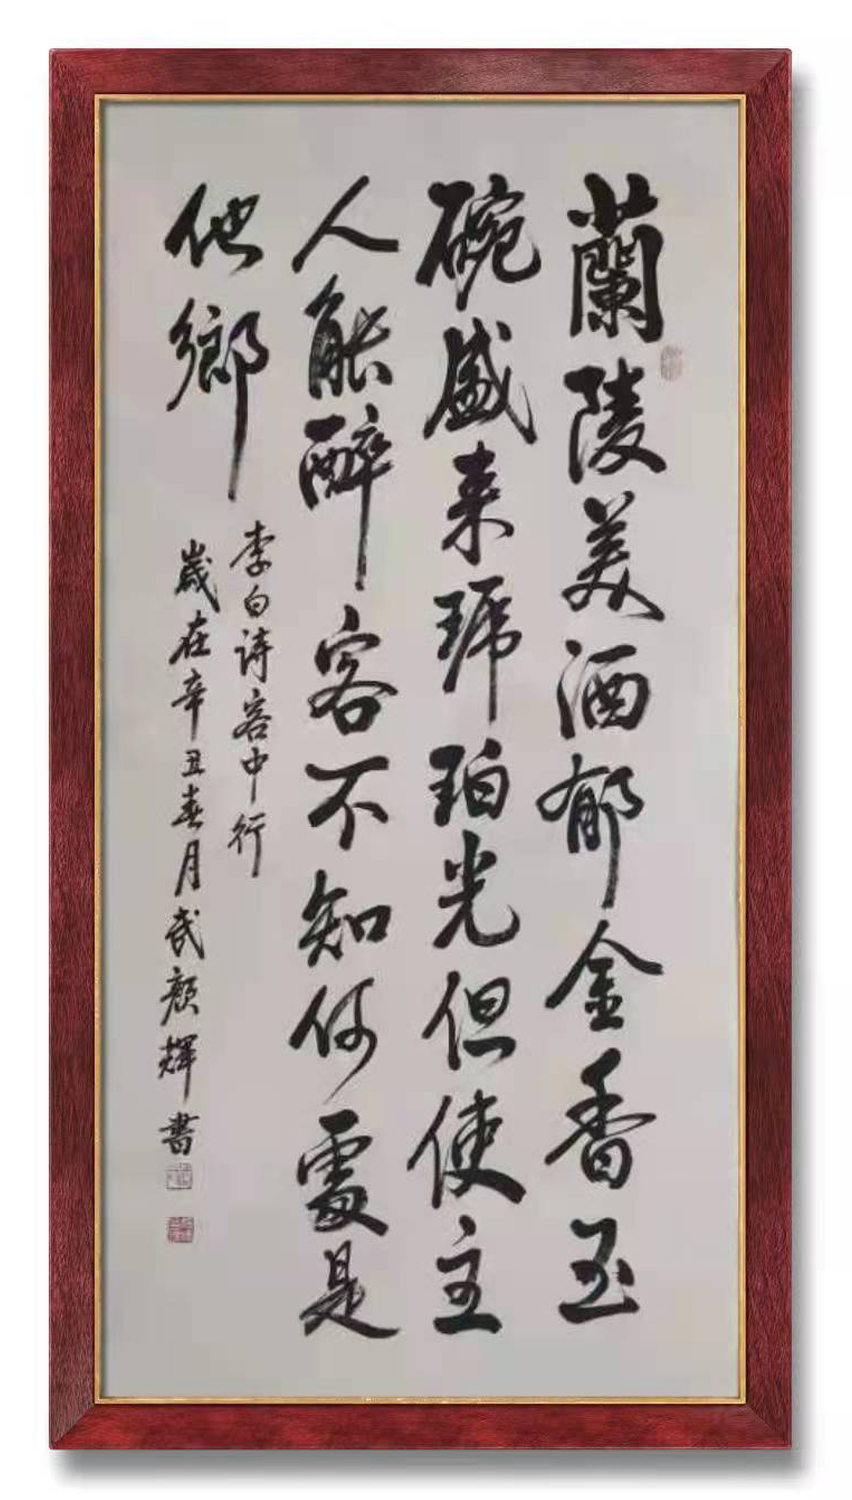 蘭陵美酒郁金香玉
碗盛来琥珀光但使主
人能醉客不知何處是
他鄉
李白诗客中行
歲在辛丑春月武顏輝書